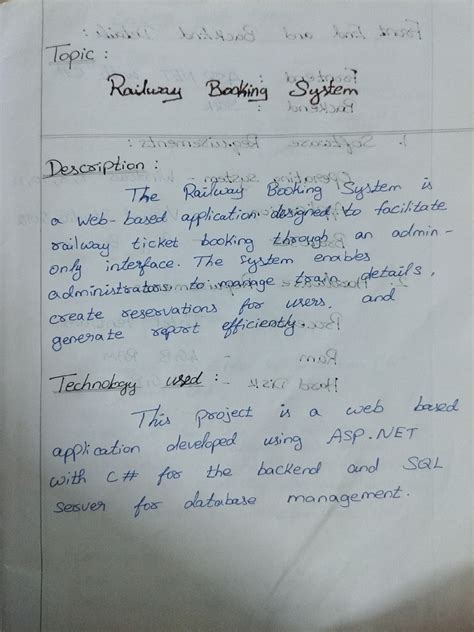 Topic :
Railway Booking System
Description :
The Railway Booking System is
a web-based application designed to facilitate
railway ticket booking through an admin-
only interface. The system enables
administrators to manage train details,
create reservations for users, and
generate report efficiently.
Technology used :
This project is a web based
application developed using ASP.NET
with C# for the backend and SQL
server for database management.